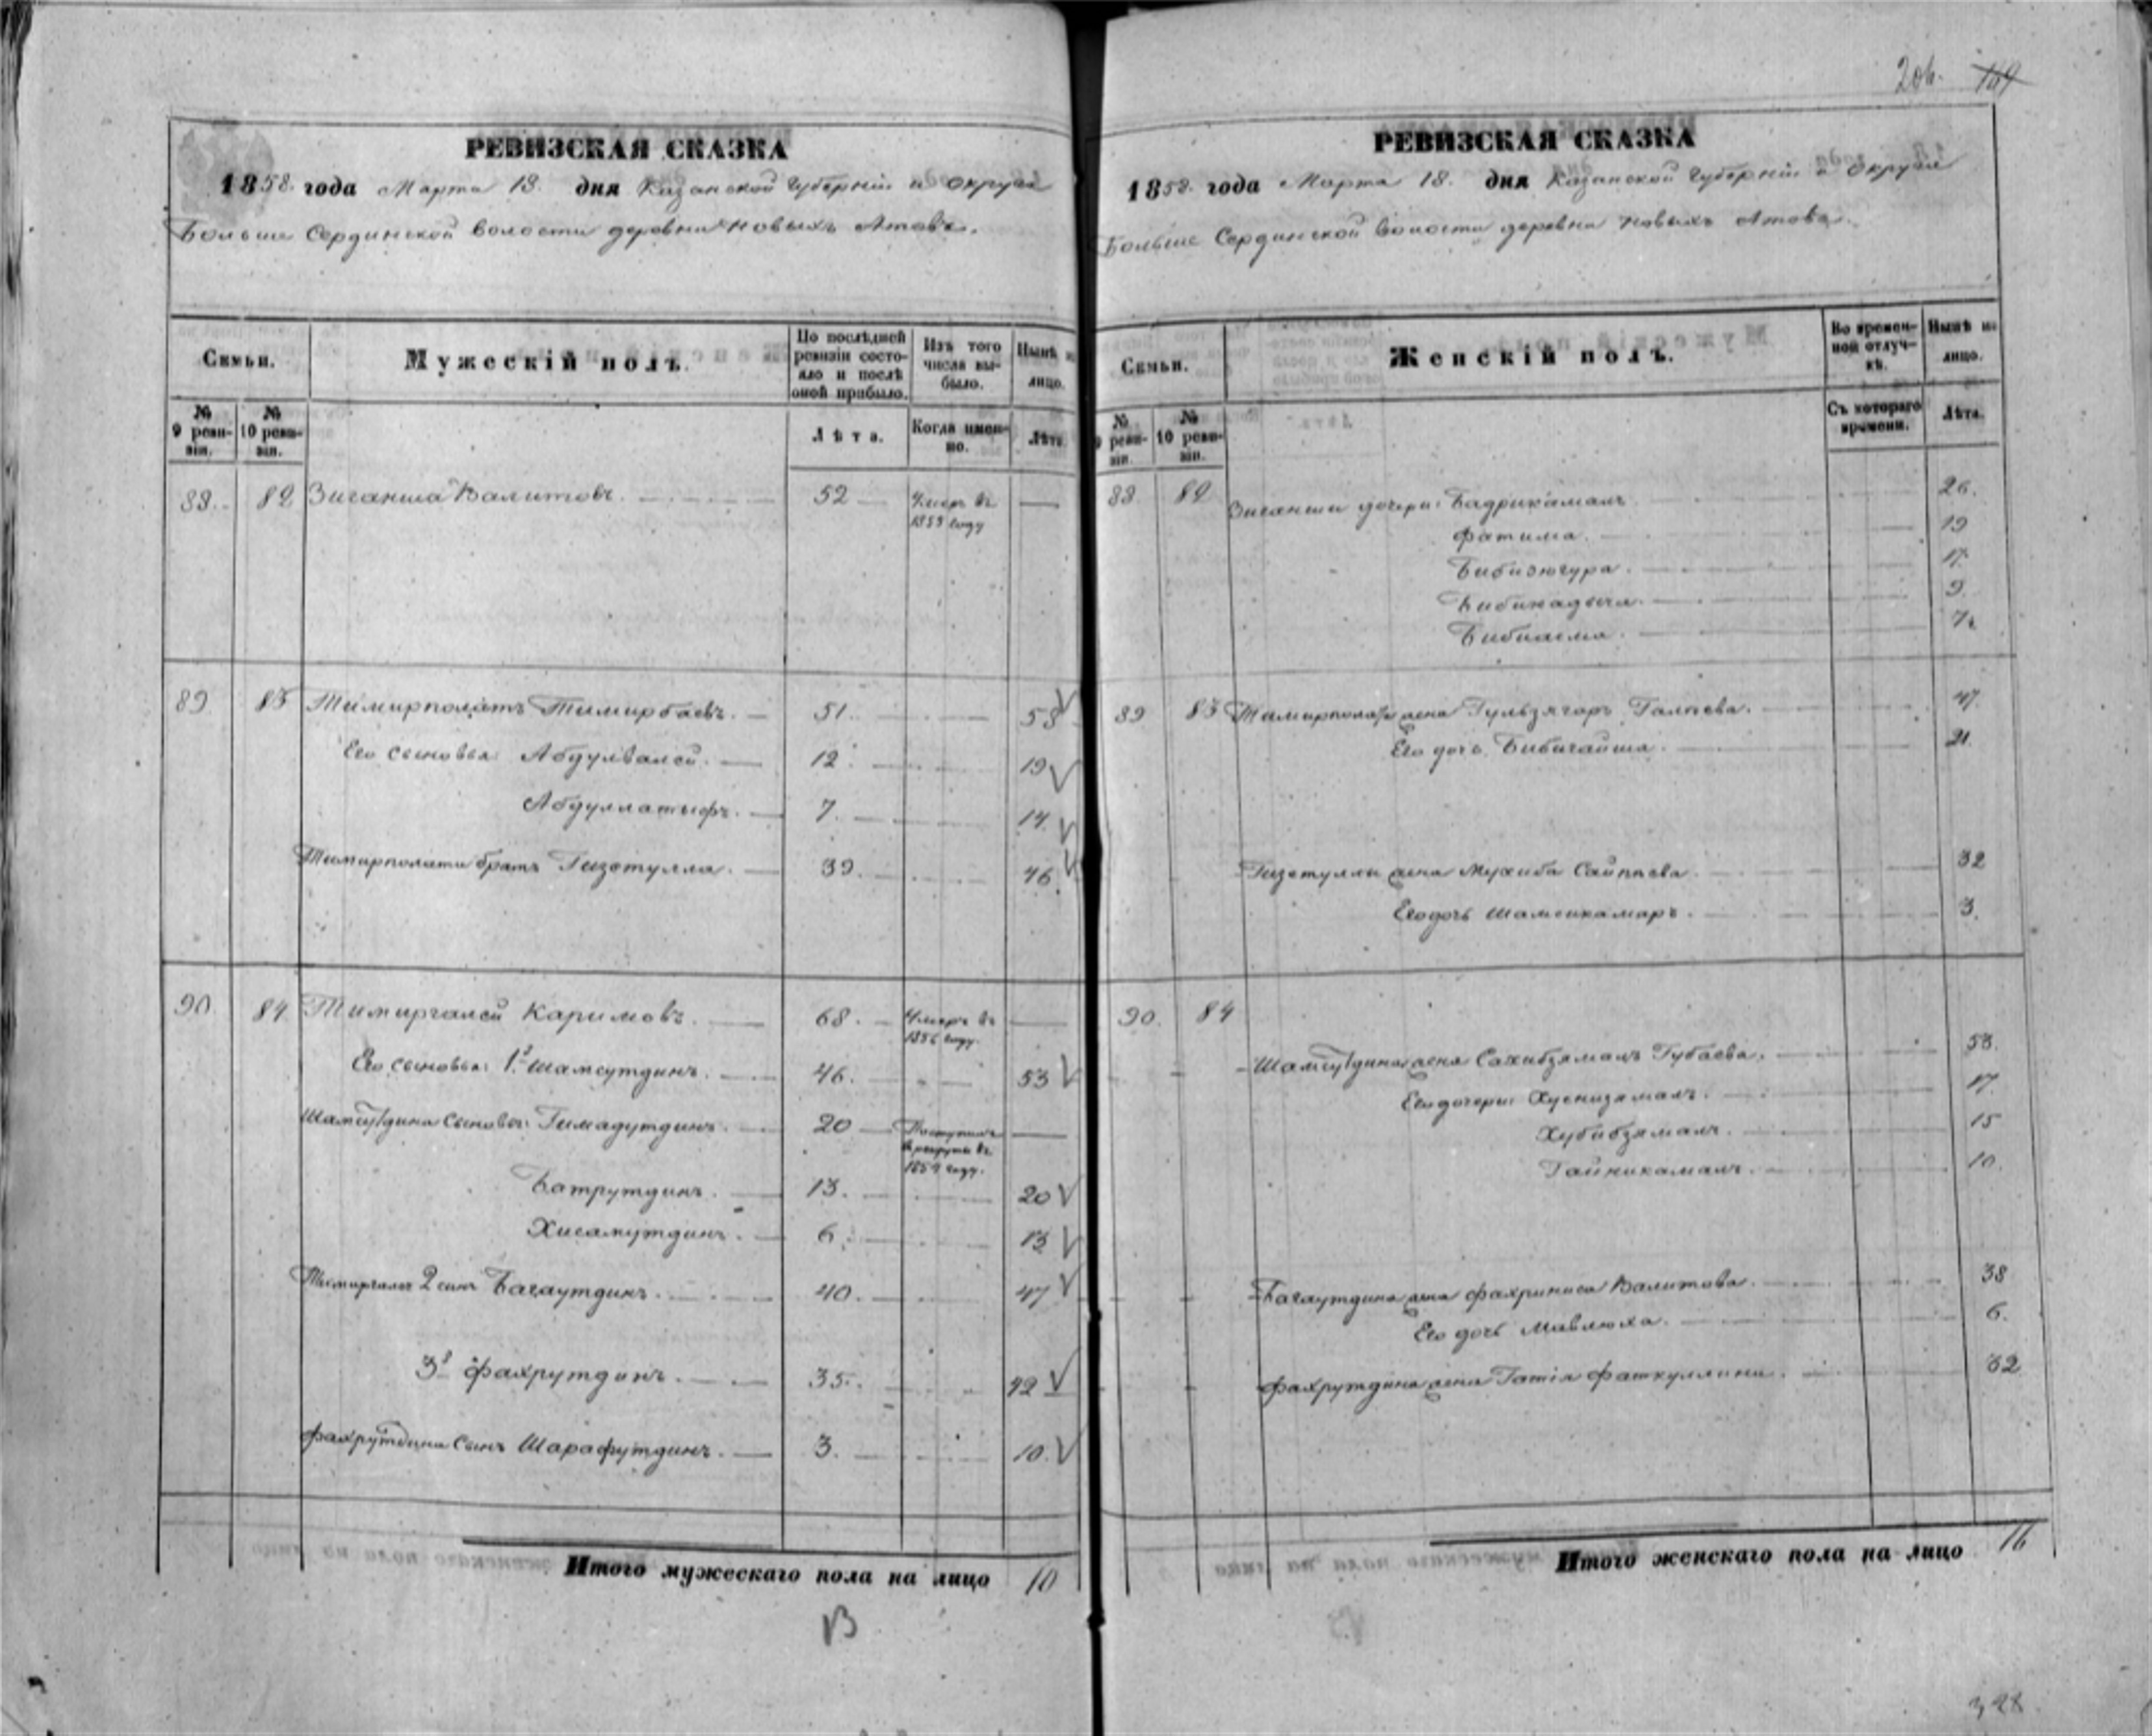 206. 169
РЕВИЗСКАЯ СКАЗКА
1858 года Марта 18. дня Казанской Губернiи и округа
Больше Сердинской волости деревни Новыхъ Атовъ.
Семьи.
Мужескiй полъ.
По послѣдней ревизiи состояло и послѣ оной прибыло.
Изъ того числа выбыло.
Нынѣ на лицо.
№ 9 ревизiи.
№ 10 ревизiи.
Лѣта.
Когда именно.
Лѣта.
88. 82 Зиганша Валитовъ. 52 Умеръ въ 1853 году —
89 83 Тимирполатъ Тимирбаевъ. 51. 58
Его сыновья: Абдулвалей. 12. 19
Абдуллатыфъ. 7. 14.
Тимирполата братъ Гизетулла. 39. 46.
90. 84 Тимиргалей Каримовъ. 68. Умеръ въ 1856 году. —
Его сыновья: 1й Шамсутдинъ. 46. 53
Шамсутдина сыновья: Гимадутдинъ. 20 Поступилъ въ рекруты въ 1854 году. —
Батрутдинъ. 13. 20
Хисамутдинъ. 6. 13
Тимиргалея 2 сынъ Багаутдинъ. 40. 47
3й Фахрутдинъ. 35. 42
Фахрутдина сынъ Шарафутдинъ. 3. 10.
Итого мужескаго пола на лицо 10
РЕВИЗСКАЯ СКАЗКА
1858 года Марта 18. дня Казанской Губернiи и округа
Больше Сердинской волости деревни Новыхъ Атовъ.
Семьи.
Женскiй полъ.
Во временной отлучкѣ.
Нынѣ на лицо.
№ 9 ревизiи.
№ 10 ревизiи.
Съ котораго времени.
Лѣта.
88 82 Зиганши дочери: Бадрикамалъ 26.
Фатима. 19
Бибизюгура. 17.
Бибинадыча. 9.
Бибиасма. 7.
89 83 Тимирполата жена Гульзягаръ Галпева. 47.
Его дочь Бибигайша. 21.
Гизетуллы жена Мухиба Сайпаева. 32
Его дочь Шамсикамаръ. 3.
90. 84
Шамсутдина жена Сахибзямалъ Губаева. 53.
Его дочери: Хуснизямалъ. 17.
Хубибзямалъ. 15
Гайникамалъ. 10.
Багаутдина жена Фахриниса Валитова. 38
Его дочь Мавлюха. 6.
Фахрутдина жена Гатiя Фаткуллина. 32
Итого женскаго пола на лицо 16